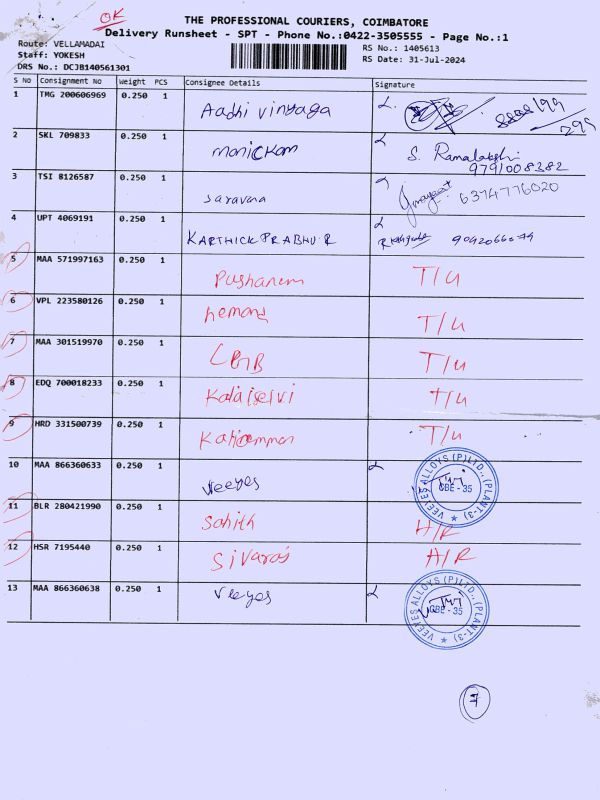 OK
THE PROFESSIONAL COURIERS, COIMBATORE
Delivery Runsheet - SPT - Phone No.:0422-3505555 - Page No.:1
Route: VELLAMADAI
Staff: YOKESH
DRS No.: DCJB140561301
RS No.: 1405613
RS Date: 31-Jul-2024
S No Consignment No Weight PCS Consignee Details Signature
1 TMG 200606969 0.250 1 Aadhi vinyaga 299
2 SKL 709833 0.250 1 manickam S. Ramalakshi
9791008382
3 TSI 8126587 0.250 1 saravana 6374776020
4 UPT 4069191 0.250 1 KARTHICK PRABHU R
5 MAA 571997163 0.250 1 Pushanam T/U
6 VPL 223580126 0.250 1 hemand T/U
7 MAA 301519970 0.250 1 T/U
8 EDQ 700018233 0.250 1 Kalaiselvi T/U
9 HRD 331500739 0.250 1 T/U
10 MAA 866360633 0.250 1 veeyes VEEYES ALLOYS (P) LTD., (PLANT-3) ★ CBE - 35
11 BLR 280421990 0.250 1 Sahith H/R
12 HSR 7195440 0.250 1 Sivaraj H/R
13 MAA 866360638 0.250 1 Veeyes VEEYES ALLOYS (P) LTD., (PLANT-3) ★ CBE - 35